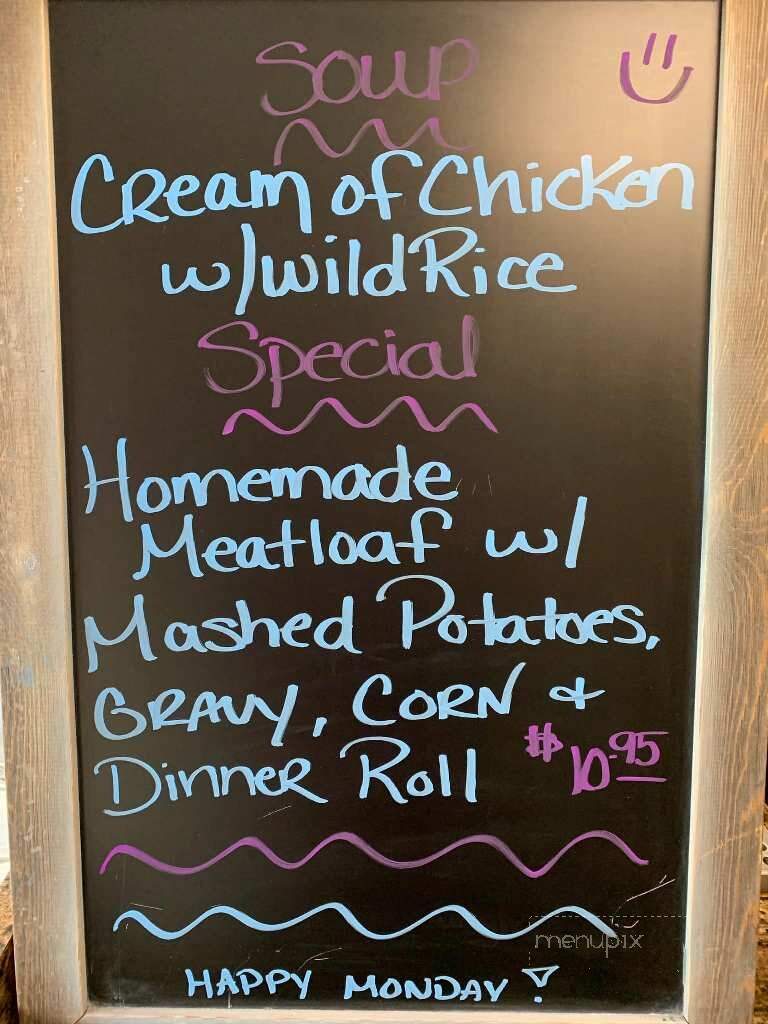 Soup
Cream of Chicken
w/wild Rice
Special
Homemade
Meatloaf w/
Mashed Potatoes,
GRAVY, CORN &
Dinner Roll $10.95
menupix
HAPPY MONDAY!